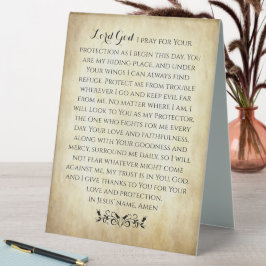 Lord God I pray for Your
protection as I begin this day. You
are my hiding place, and under
Your wings I can always find
refuge. Protect me from trouble
wherever I go and keep evil far
from me. No matter where I am, I
will look to You as my Protector,
the One who fights for me every
day. Your love and faithfulness,
along with Your goodness and
mercy, surround me daily, so I will
not fear whatever might come
against me. My trust is in You, God,
and I give thanks to You for Your
love and protection.
in Jesus' name, Amen